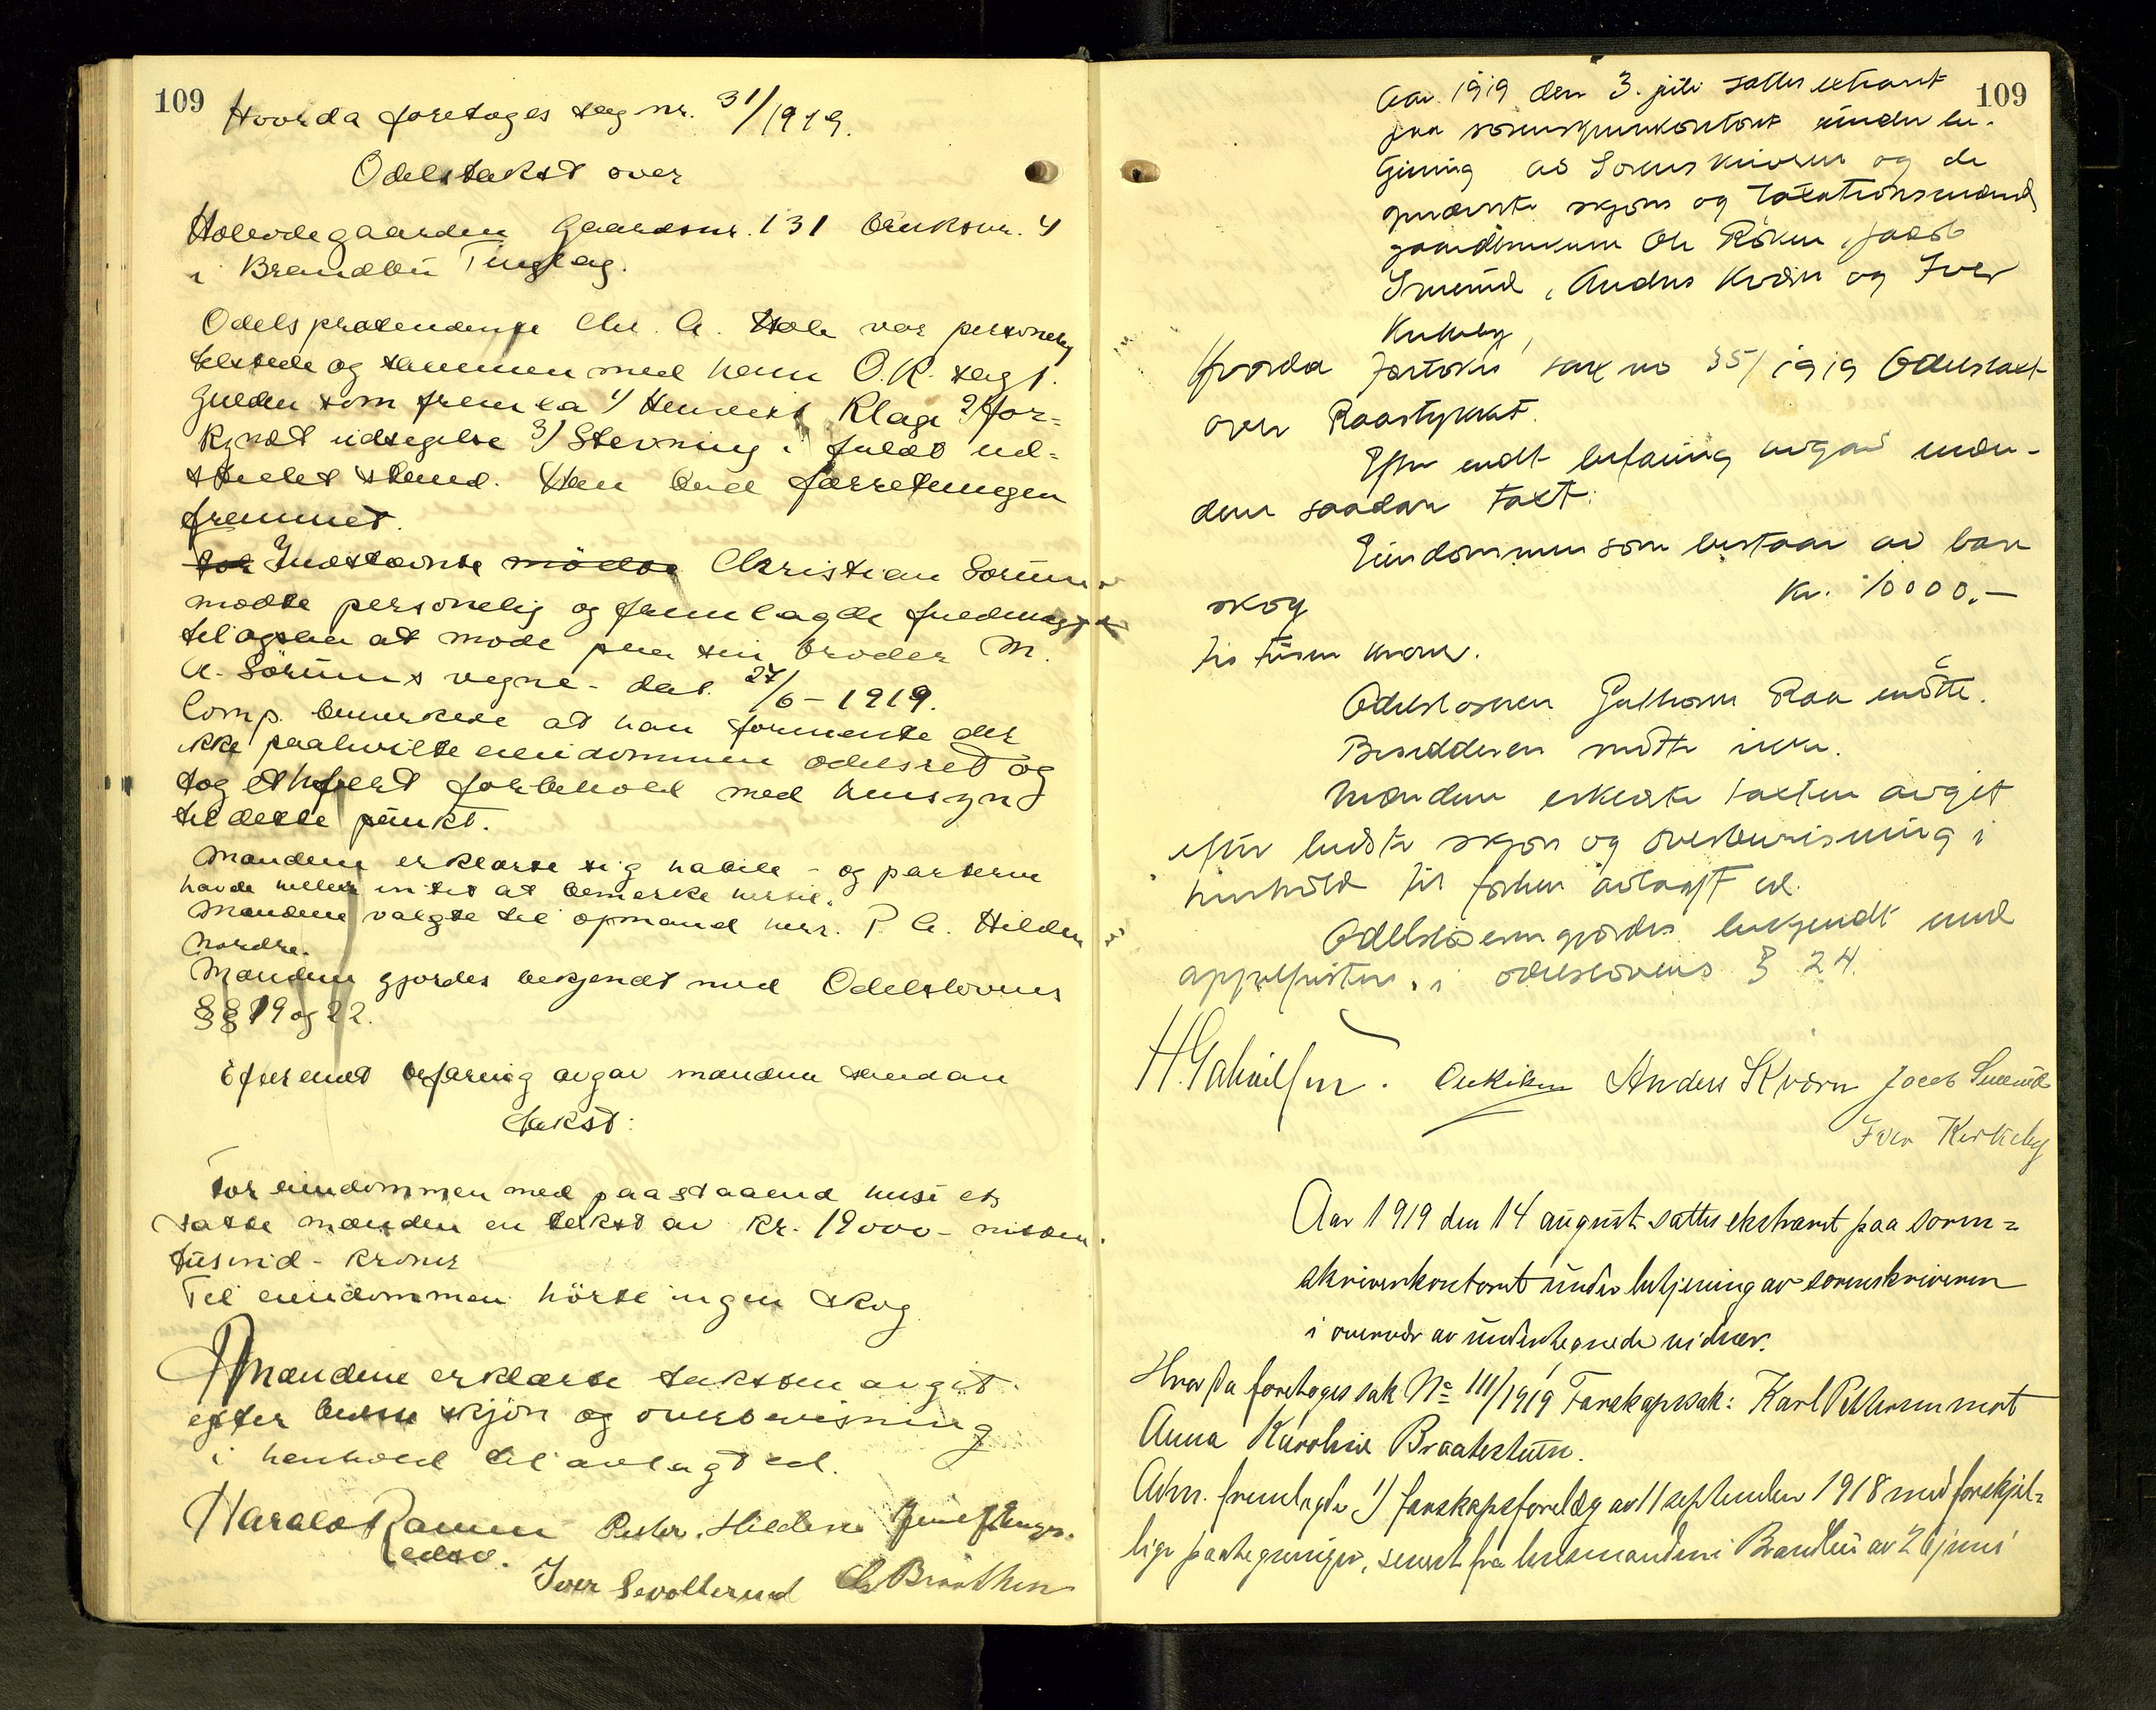 109
Hvorda foretoges sag nr. 31/1919.
Odelstakst over
gaardsnr. 131 bruksnr. 4
i Brandbu Tinglag.
Odelsprætendenten Chr. A. Hole var personlig
tilstede og sammen med ham O.R. sagf.
Gulden som fremla 1/ Henvist Klage 2/ for-
kyndt utsigelse 3/ Stevning i fuldt ud-
stedet stand. Han bad forretningen
fremmet.
Indstevnte Christian Sørum
mødte personlig og fremlagde fuldmagt
til ogsaa at møde paa sin broder M.
A. Sørums vegne - dat. 27/6-1919.
Comp. bemerkede at han formente der
ikke paahvilte eiendommen odelsret og
tog ethvert forbehold med hensyn
til dette punkt.
Mændene erklærte sig habile - og parterne
havde heller intet at bemerke hertil.
Mændene valgte til opmand herr. P. A. Hilden
Nordre.
Mændene gjordes bekjendt med Odelslovens
§§ 19 og 22.
Efter endt befaring avgav mændene saadan
takst:
For eiendommen med paastaaende huse etc
satte mændene en takst av kr. 19000 - nitten
tusind - kroner
Til eiendommen hørte ingen skog
Mændene erklærte taksten avgit
efter bedste skjøn og overbevisning
i henhold til avlagt ed.
Harald Ramm
edsv.
Peder Hilden
Iver Sevalterud Braathen
109
Aar 1919 den 3. juli sattes extraret
paa sorenskriverkontoret under be-
tjening av Sorenskriveren og de
opnævnte skjøns og taxationsmænd
gaardbrukerne Ole Røken, Jacob
Smerud, Anders Kværn og Iver
Kirkeby,
Hvorda foretokes sak no 35/1919 Odelstaxt
over Raastykket.
Efter endt befaring avgav mæn-
dene saadan taxt:
Eiendommen som bestaar av bare
skog kr. 10000.-
ti tusen kroner.
Odelsløseren Gulbrand Raa møtte.
Besidderen møtte ikke.
Mændene erklærte taxten avgit
efter bedste skjøn og overbevisning i
henhold til forhen avlagt ed.
Odelsløseren gjordes bekjendt med
appelfristen i odelslovens § 24.
H. Gabrielsen. Anders Kværn Jacob Smerud
Iver Kirkeby
Aar 1919 den 14 august sattes ekstraret paa soren=
skriverkontoret under betjening av sorenskriveren
i overvær av undertegnede vidner.
Hvor da foretoges sak No 111/1919 Farskapssak: Karl Pettersen mot
Anna Karoline Braatestuen.
Adm. fremlagde 1) farskapsforelæg av 11 september 1918 med forskjel=
lige paategninger, senest fra lensmanden i Brandbu av 26 juni